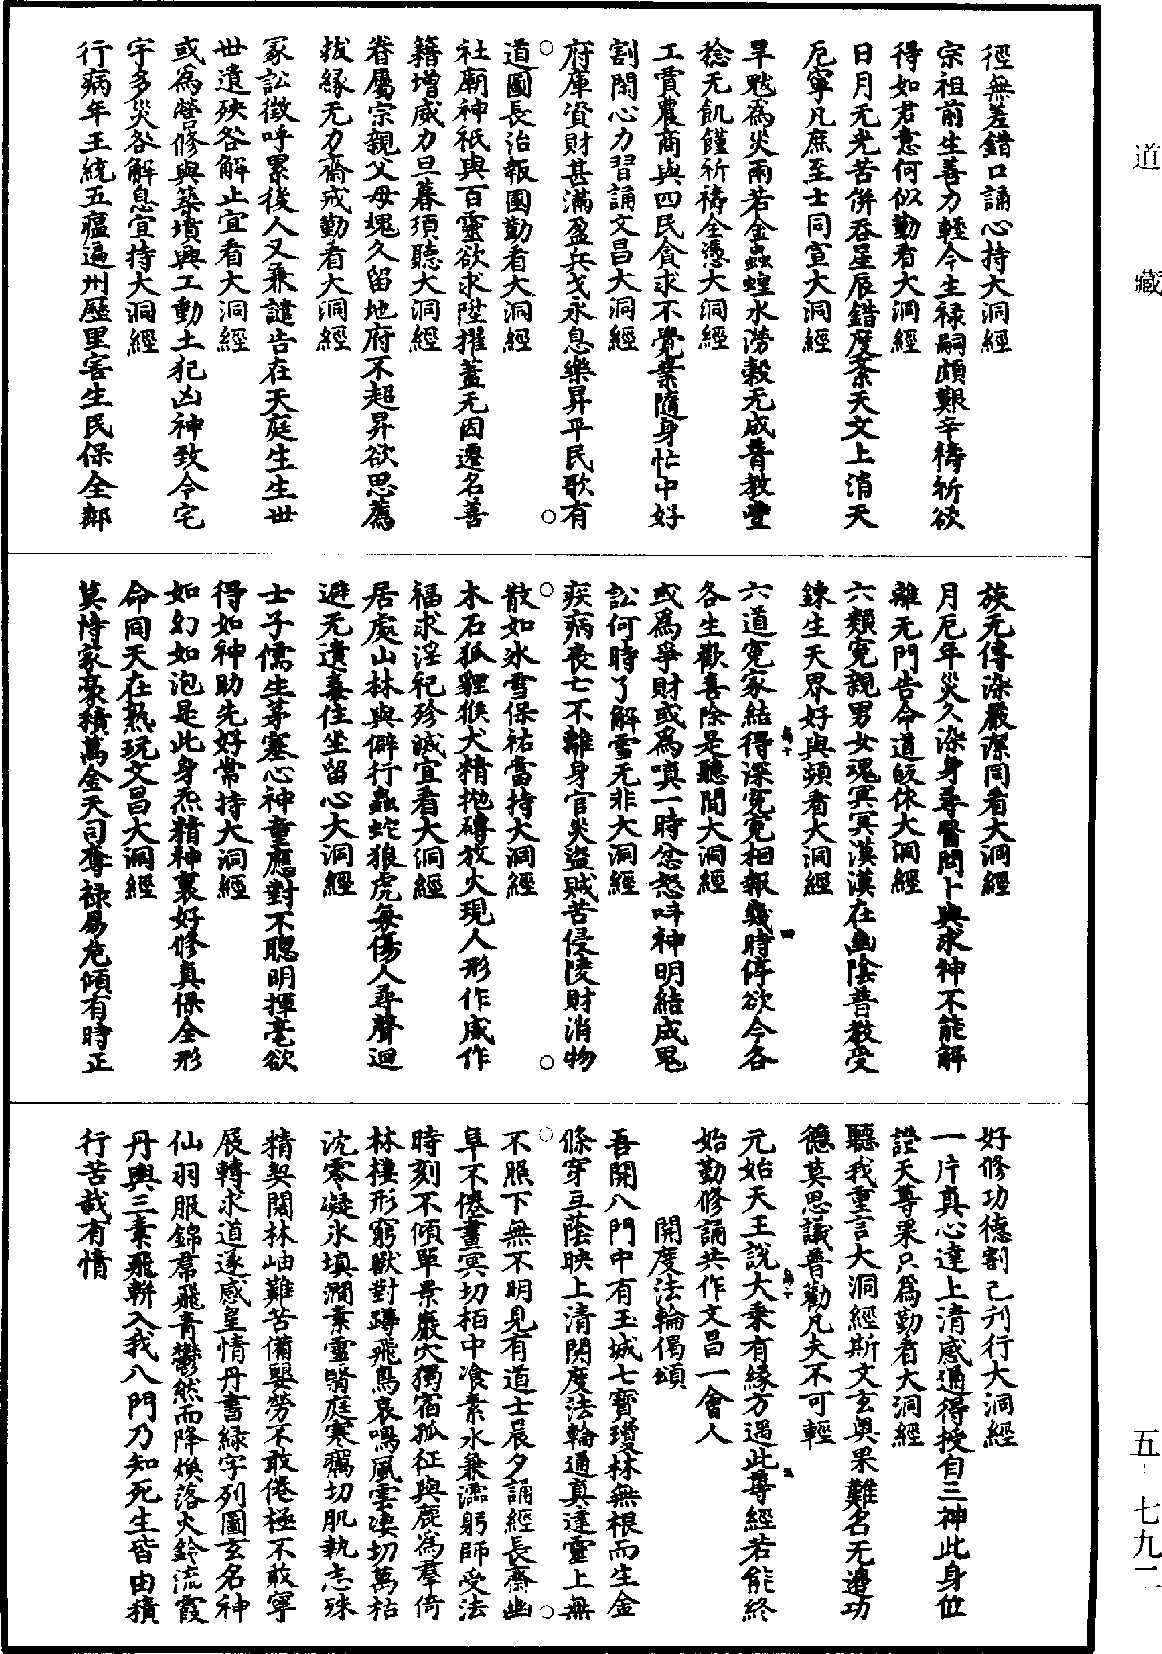 徑無差錯口誦心持大洞經
宗祖前生善力輕今生祿嗣頗艱辛禱祈欲
得如君意何似勤看大洞經
日月无光苦併吞星辰錯度紊天文上消天
厄寧凡庶至士同宣大洞經
旱魃為災雨若金蟲蝗水澇穀无成普教豐
稔无飢饉祈禱全憑大洞經
工賈農商與四民貪求不覺業隨身忙中好
割閑心力習誦文昌大洞經
府庫資財甚滿盈兵戈永息樂昇平民歌有
道圖長治報國勤看大洞經
社廟神祇與百靈欲求陞擢蓋无因遷名善
籍增威力旦暮須聽大洞經
眷屬宗親父母魂久留地府不超昇欲思薦
拔緣无力齋戒勤看大洞經
冢訟徵呼累後人又兼譴告在天庭生生世
世遺殃咎解止宜看大洞經
或為營修與築墳興工動土犯凶神致令宅
宇多災咎解息宜持大洞經
行病年王統五瘟遍州歷里害生民保全鄰
族无傳染嚴潔同看大洞經
月厄年災久染身尋醫問卜與求神不能解
離无門告命道皈依大洞經
六類冤親男女魂冥冥漠漠在幽陰普教受
鍊生天界好與頻看大洞經
六道冤家結得深冤冤相報幾時停欲令各
各生歡喜除是聽聞大洞經
或為爭財或為嗔一時忿怒呌神明結成冤
訟何時了解雪无非大洞經
疾病喪亡不離身官災盜賊苦侵陵財消物
散如氷雪保祐當持大洞經
木石狐貍猴犬精拋磚放火現人形作威作
福求淫祀殄滅宜看大洞經
居處山林與僻行蟲蛇狼虎每傷人尋聲迴
避无遺毒住坐留心大洞經
士子儒生茅塞心神童應對不聰明揮毫欲
得如神助先好常持大洞經
如幻如泡是此身炁精神裏好修真保全形
命同天在熟玩文昌大洞經
莫恃家豪積萬金天司奪祿易危傾有時正
好修功德割己刋行大洞經
一片真心達上清感通得授自三神此身位
證天尊果只為勤看大洞經
聽我重言大洞經斯文玄奧果難名无邊功
德莫思議普勸凡夫不可輕
元始天王說大乗有緣方遇此尊經若能終
始勤修誦共作文昌一會人
開度法輪偈頌
吾開八門中有玉城七寶瓊林無根而生金
條穿亙蔭映上清開度法輪通真達靈上無
不照下無不明見有道士晨夕誦經長齋幽
阜不倦晝冥切栢中飡素水兼濡躬師受法
時刻不傾單景巖穴獨宿孤征與鹿為羣倚
林棲形窮獸對蹲飛鳥哀鳴風雲淒切萬枯
沈零凝氷塡澗素靈翳庭寒癘切肌執志殊
精契闊林岫難苦備嬰勞不敢倦極不敢寧
展轉求道遂感皇情丹書綠字列圖玄名神
仙羽服錦帬飛青鬱然而降煥落火鈴流霞
丹輿三素飛軿入我八門乃知死生皆由積
行苦哉有情
道藏
五‐七九二